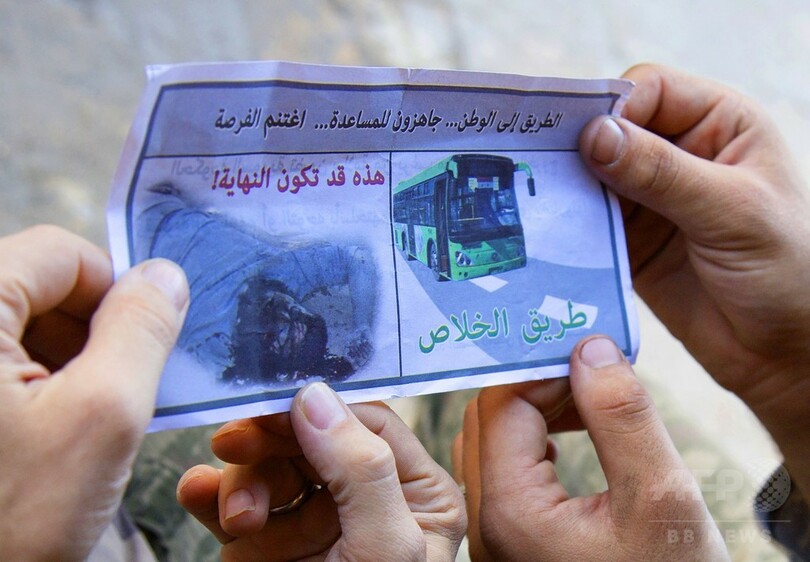 الطريق إلى الوطن... جاهزون للمساعدة... اغتنم الفرصة
هذه قد تكون النهاية!
طريق الخلاص
AFP
BB NEWS